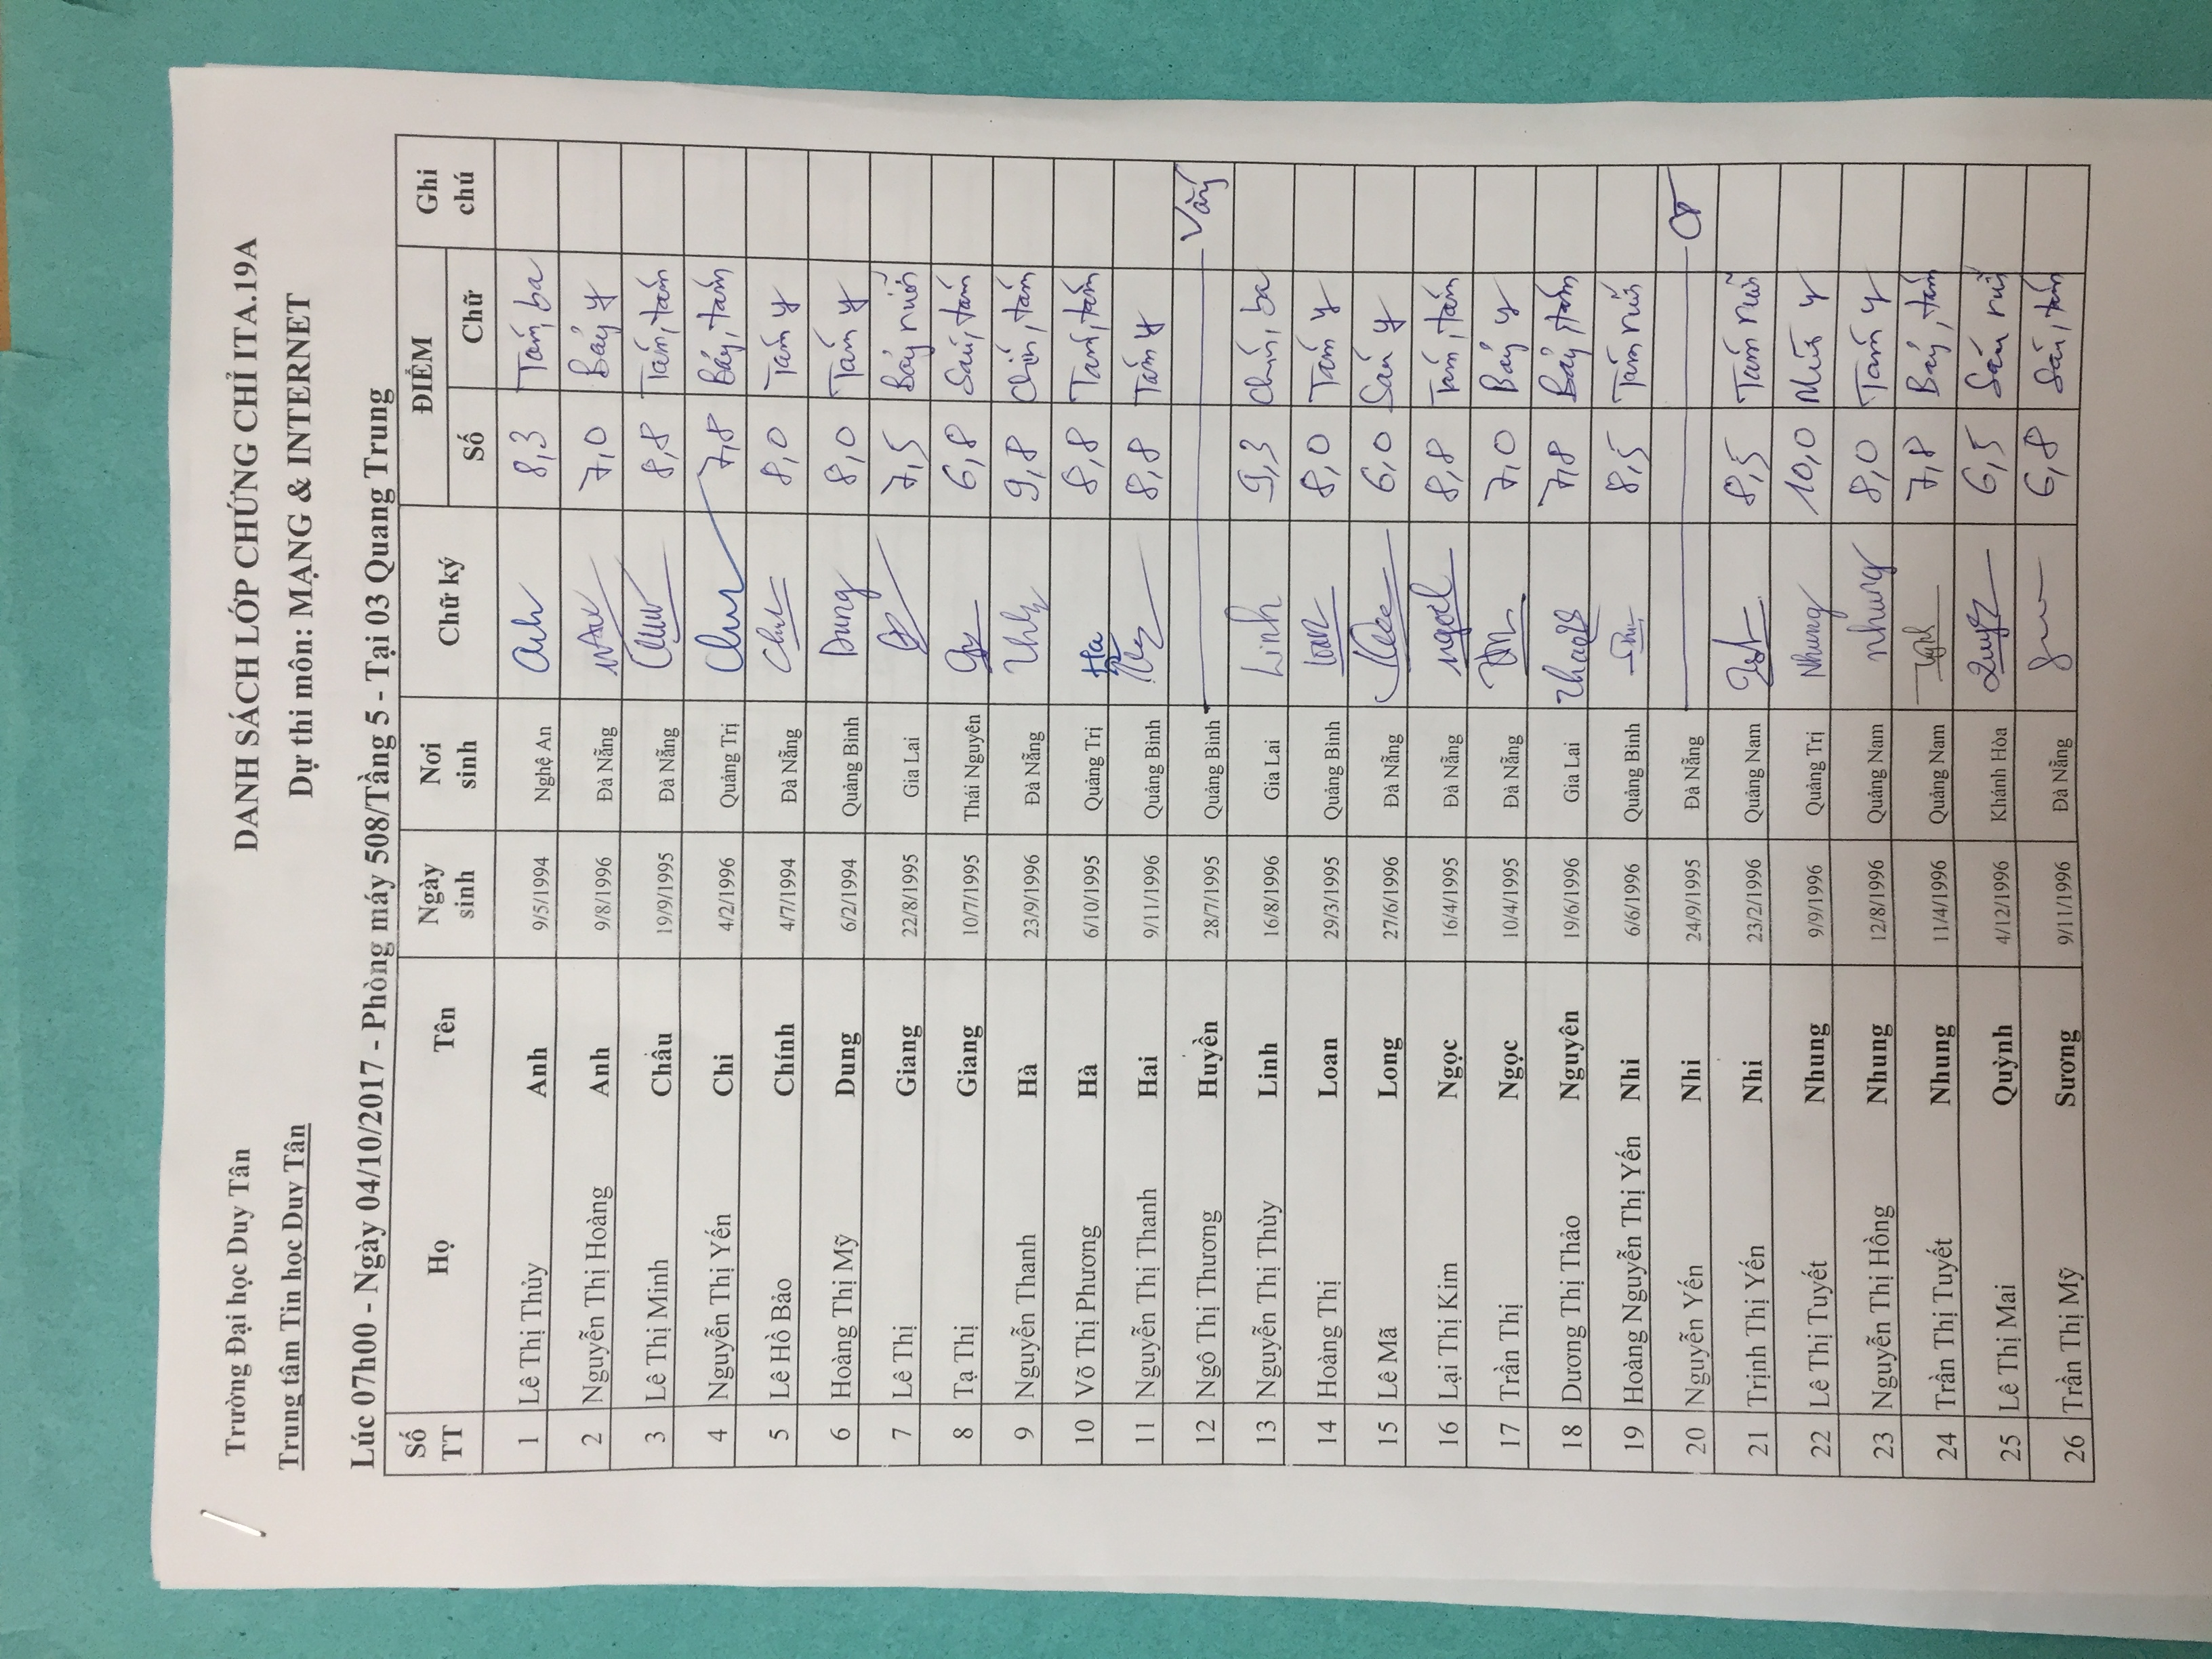 Trường Đại học Duy Tân DANH SÁCH LỚP CHỨNG CHỈ ITA.19A
Trung tâm Tin học Duy Tân Dự thi môn: MẠNG & INTERNET
Lúc 07h00 - Ngày 04/10/2017 - Phòng máy 508/Tầng 5 - Tại 03 Quang Trung
Số TT Họ Tên Ngày sinh Nơi sinh Chữ ký ĐIỂM Ghi chú
Số Chữ
1 Lê Thị Thủy Anh 9/5/1994 Nghệ An Anh 8,3 Tám, ba
2 Nguyễn Thị Hoàng Anh 9/8/1996 Đà Nẵng 7,0 Bảy y
3 Lê Thị Minh Châu 19/9/1995 Đà Nẵng 8,8 Tám, tám
4 Nguyễn Thị Yến Chi 4/2/1996 Quảng Trị 7,8 Bảy, tám
5 Lê Hồ Bảo Chính 4/7/1994 Đà Nẵng 8,0 Tám y
6 Hoàng Thị Mỹ Dung 6/2/1994 Quảng Bình Dung 8,0 Tám y
7 Lê Thị Giang 22/8/1995 Gia Lai 7,5 Bảy rưỡi
8 Tạ Thị Giang 10/7/1995 Thái Nguyên 6,8 Sáu, tám
9 Nguyễn Thanh Hà 23/9/1996 Đà Nẵng 9,8 Chín, tám
10 Võ Thị Phương Hà 6/10/1995 Quảng Trị Ha 8,8 Tám, tám
11 Nguyễn Thị Thanh Hai 9/11/1996 Quảng Bình 8,8 Tám y
12 Ngô Thị Thương Huyền 28/7/1995 Quảng Bình Vắng
13 Nguyễn Thị Thùy Linh 16/8/1996 Gia Lai Linh 9,3 Chín, ba
14 Hoàng Thị Loan 29/3/1995 Quảng Bình Loan 8,0 Tám y
15 Lê Mã Long 27/6/1996 Đà Nẵng 6,0 Sáu y
16 Lại Thị Kim Ngọc 16/4/1995 Đà Nẵng ngọc 8,8 Tám, tám
17 Trần Thị Ngọc 10/4/1995 Đà Nẵng 7,0 Bảy y
18 Dương Thị Thảo Nguyên 19/6/1996 Gia Lai 7,8 Bảy, tám
19 Hoàng Nguyễn Thị Yến Nhi 6/6/1996 Quảng Bình 8,5 Tám rưỡi
20 Nguyễn Yến Nhi 24/9/1995 Đà Nẵng
21 Trịnh Thị Yến Nhi 23/2/1996 Quảng Nam 8,5 Tám rưỡi
22 Lê Thị Tuyết Nhung 9/9/1996 Quảng Trị Nhung 10,0 Mười y
23 Nguyễn Thị Hồng Nhung 12/8/1996 Quảng Nam nhung 8,0 Tám y
24 Trần Thị Tuyết Nhung 11/4/1996 Quảng Nam 7,8 Bảy, tám
25 Lê Thị Mai Quỳnh 4/12/1996 Khánh Hòa 6,5 Sáu rưỡi
26 Trần Thị Mỹ Sương 9/11/1996 Đà Nẵng 6,8 Sáu, tám